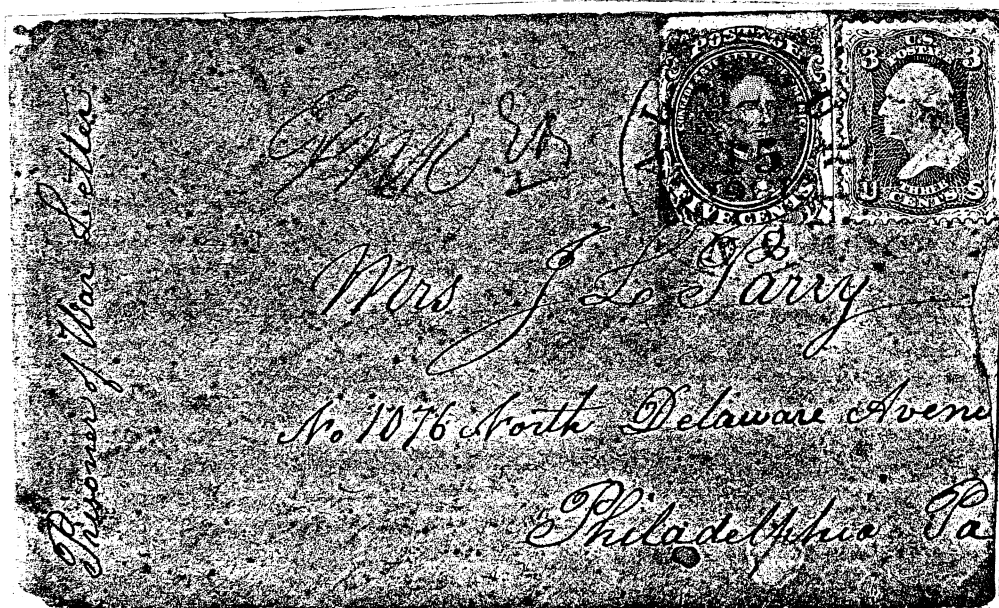 Prisoner of War Letter
POSTAGE
FIVE CENTS
U.S.
POSTAGE
3 3
U S
THREE
CENTS
Mrs J L Parry
No 1076 North Delaware Avenu
Philadelphia Pa